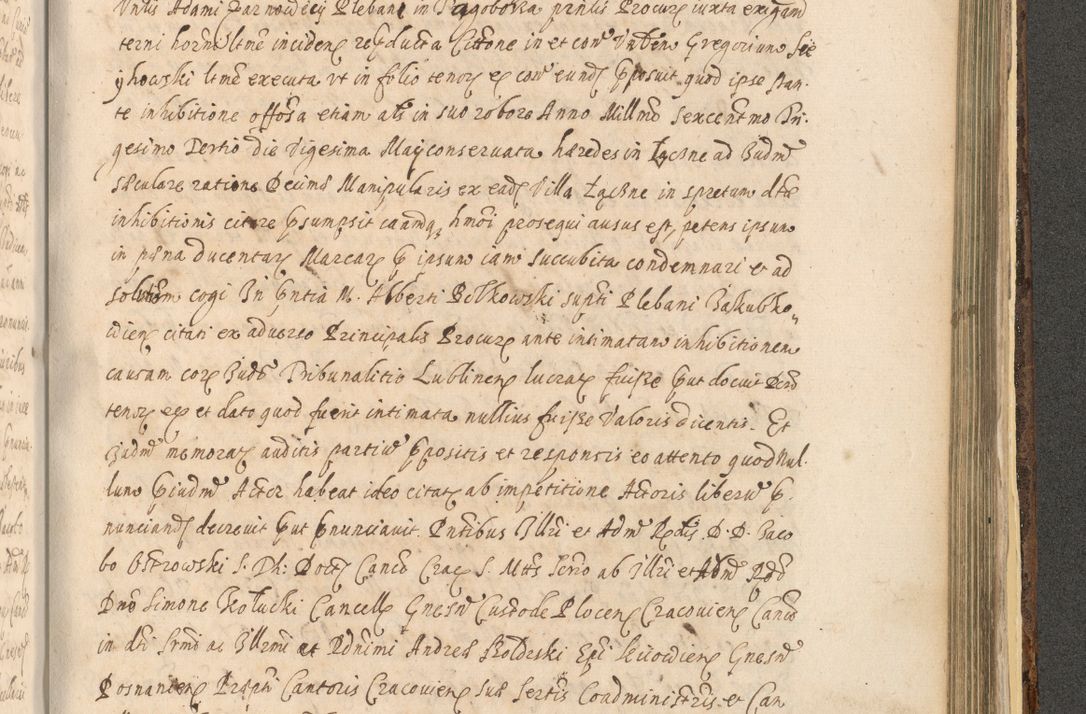 Vnlis Adami Parnowicij Plebani in Pagoboka pntis Procurs iuxta exigam
terni horne ltme inciden reprducta Cittone in et con Vnben Gregorium Sie
ÿhowski ltme executa vt in folio tenor ex con eund pposuit quod ipse stan
te inhibitione offosa etiam als in suo robore Anno Millmo Sexcentmo Tri
gesimo Tertio die Vigesima Maÿ conseruata haredes in Łączne ad Iudm
sæculare ratione Decima Manipularis ex ead Villa Łączne in spretum dta
inhibitionis citare psumpsit caamq hmoi prosequi ausus est, petens ipsum
in pæna ducentar Marcar p ipsum iam succubita condemnari et ad
solutionem cogi In pntia M. Alberti Bełkowski supti Plebani Iakubko
wien citati ex aduerso Principalis Procur ante intimatam inhibitionem
causam cor Iudo Tribunalitio Lublinen lucrat fuisse put docuit Decro
tenor eos et dato quod fuerit intimata nullius fuisse Valoris dicentis. Et
Iudm memorat auditis partiu ppositis et responsis eo attento quod Nul
lum piudm Actor habeat ideo citat ab impetitione Actoris liberu p
nunciand decreuit put pnunciauit Pntibus Illri et Adm Rdis D. D. Iaco
bo Ostrowski S. Th: Doct Canco Crac S. Mtis Scrio ab Illri et Adm Rdo
Dno Simone Kołucki Cancell Gnesn Custode Plocen Cracouien Canco
in dti Irmi ac Illrmi et Rdnimi Andrea Szołdrski Epi Kiiowien Gnesn
Posnanien Præpti Cantoris Cracouien Sue Sertis Coadministris et Can